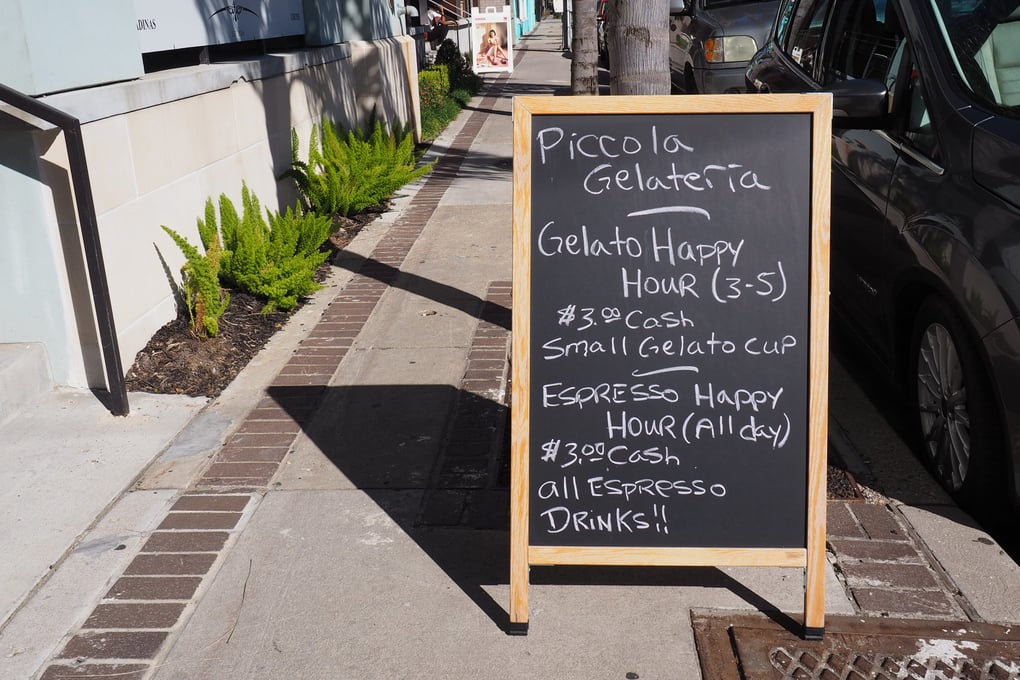 Piccola
Gelateria
Gelato Happy
Hour (3-5)
$3.00 Cash
Small Gelato cup
Espresso Happy
Hour (All day)
$3.00 Cash
all Espresso
Drinks!!